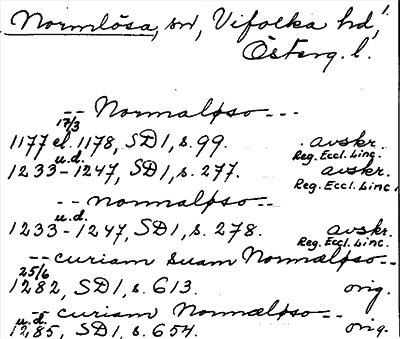 Normlösa, sn, Vifolka hd,
Österg. l.
-- Normalpso ---
17/3
1177 el. 1178, SD 1, s. 99. avskr.
u.d. Reg. Eccl. Linc.
1233-1247, SD 1, s. 277. avskr.
Reg. Eccl. Linc.
-- normalpso --
u.d.
1233-1247, SD 1, s. 278. avskr.
Reg. Eccl. Linc.
-- curiam suam Normælpso --
25/6
1282, SD 1, s. 613. orig.
-- curiam Normælpso --
u.d.
1285, SD 1, s. 654. orig.